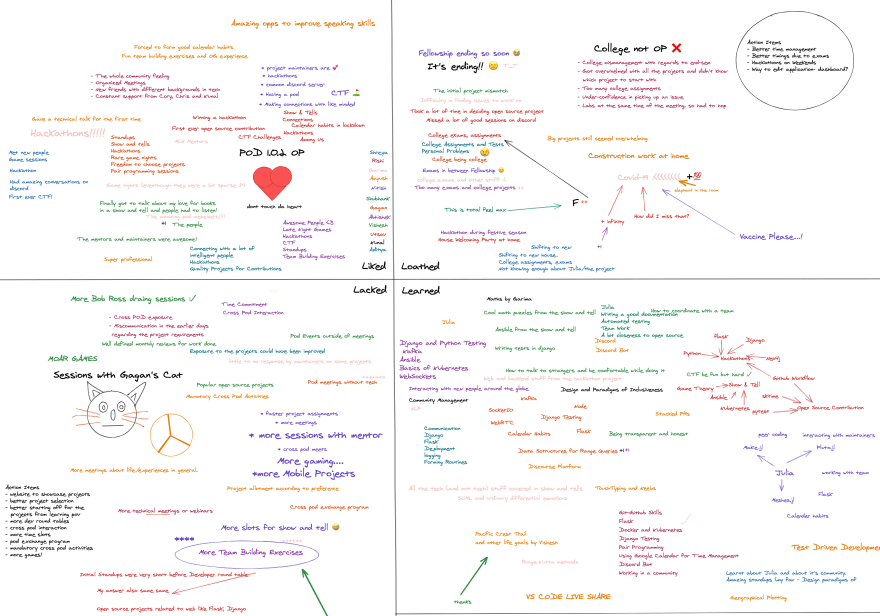 Amazing opps to improve speaking skills
Forced to form good calendar habits
Fun team building exercises and Oth experience
- The whole community feeling
- Organised Meetings
- New friends with different backgrounds in tech
- Constant support from Cory, Chris and Kunal
+ project maintainers are
+ hackathons
+ common discord server
+ Having a pod
+ Making connections with like minded
CTF
Game a technical talk for the first time
Hackathons!!!!!
Winning a hackathon
First ever open source contribution
Standups
Show and tells
Hackathons
Rare game nights
Freedom to choose projects
Pair programming sessions
Show & Tells
Connections
Calendar habits in lockdown
Hackathons
CTF Challenges
Among Us
Met new people
Game sessions
Hackathon
Had amazing conversations on
discord
First ever CTF!
POD 1.0.1 OP
dont touch da heart
Shreya
Rishi
Garima
Aayush
Nitish
Shubhank
Gagan
Abhishek
Vishesh
Utsav
Kunal
Aditya
Finally got to talk about my love for books
in a show and tell and people had to listen!
+1 The people
The mentors and maintainers were awesome!
Super professional
Connecting with a lot of
intelligent people
Hackathons
Quality Projects for Contributions
Awesome People <3
Late Night Games
Hackathons
CTF
Standups
Team Building Exercises
Liked
Fellowship ending so soon
It's ending!!
The initial project mismatch
Difficulty in finding issues to work on
Took a lot of time in deciding open source project
Missed a lot of good sessions on discord
College exams, assignments
College Assignments and Tests
Personal Problems
College being college
Exams in between Fellowship
college exams and other stuff :(
Too many exams and college projects
This is total feel max
Hackathon during festive season
House Welcoming Party at home
College not OP
- College mismanagement with regards to end-sem
- Got overwhelmed with all the projects and didn't know
which project to start with
- Too many college assignments
- Under-confidence in picking up an issue
- Labs at the same time of the meeting, so had to hop
Action Items
- Better time management
- Better timings due to exams
- Hackathons on Weekends
- Way to edit application dashboard?
Big projects still seemed overwhelming
Construction work at home
Covid-19
elephant in the room
F ++
+ infinity
How did I miss than?
+1
Vaccine Please...!
Shifting to new
Shifting to new house.
College assignments, exams
Not knowing enough about Julia/the project
Loathed
Lacked
More Bob Ross draing sessions
Time Commitment
Cross Pod Interaction
- Cross POD exposure
- Miscommunication in the earlier days
regarding the project requirements
Well defined monthly reviews for work done
Pod Events outside of meetings
Exposure to the projects could have been improved
little to no response by maintainers on some projects
MOAR GAMES
Sessions with Gagan's Cat
Popular open source projects
Pod meetings without tech
Monatary Cross Pod Activities
+ Faster project assignments
+ more meetings
* more sessions with mentor
+ cross pod meets
More gaming....
*more Mobile Projects
More meetings about life/experiences in general.
Project allotment according to preference
Action Items
- website to showcase projects
- better project selection
- better starting off for the
projects from learning pov
- more dev round tables
- cross pod interaction
- more time slots
- pod exchange program
- mandatory cross pod activities
- more games!
More technical meetings or webinars
Cross pod exchange program
More slots for show and tell
****
More Team Building Exercises
Initial Standups were very short before Developer round table
My answer also same same
Open source projects related to web like Flask, Django
Learned
Manim by Garima
Cool math puzzles from the show and tell
Julia
Ansible from the show and tell
Django and Python Testing
Kafka
Ansible
Basics of Kubernetes
WebSockets
Writing tests in django
Julia
Writing a good documentation
Automated testing
Team Work
A bit closeness to open source
How to coordinate with a team
Discord
Discord Bot
How to talk to strangers and be comfortable while doing it
Web and backend stuff from the hackathon project
Interacting with new people around the globe
Design and Paradigms of Inclusiveness
Community Management
Kafka
SocketIO
Node
WebRTC
Django Testing
Calendar Habits
Flask
Communication
Django
Flask
Deployment
logging
Forming Routines
Flask
Django
Python
Hackathons
Neo4j
CTF be fun but hard
Github Workflow
Game Theory
Show & Tell
Ansible
Kubernetes
pytest
Open Source Contribution
Stacked PRs
Being transparent and honest
Data Structures for Range Queries +1
Discourse Platform
peer coding
interacting with maintainers
Julia
working with team
Flask
Calendar habits
All the tech (and not tech) stuff covered in show and tells
Touch-Typing and Keebs
Pacific Crest Trail
and other life goals by Vishesh
Git-Github Skills
Flask
Docker and Kubernetes
Django Testing
Pair Programming
Using Google Calendar for Time Management
Discord Bot
Working in a community
Test Driven Developmen
thanks
VS CODE LIVE SHARE
Learnt about Julia and about it's community.
Amazing standups lay flow - Design paradigms of
Geographical Plotting